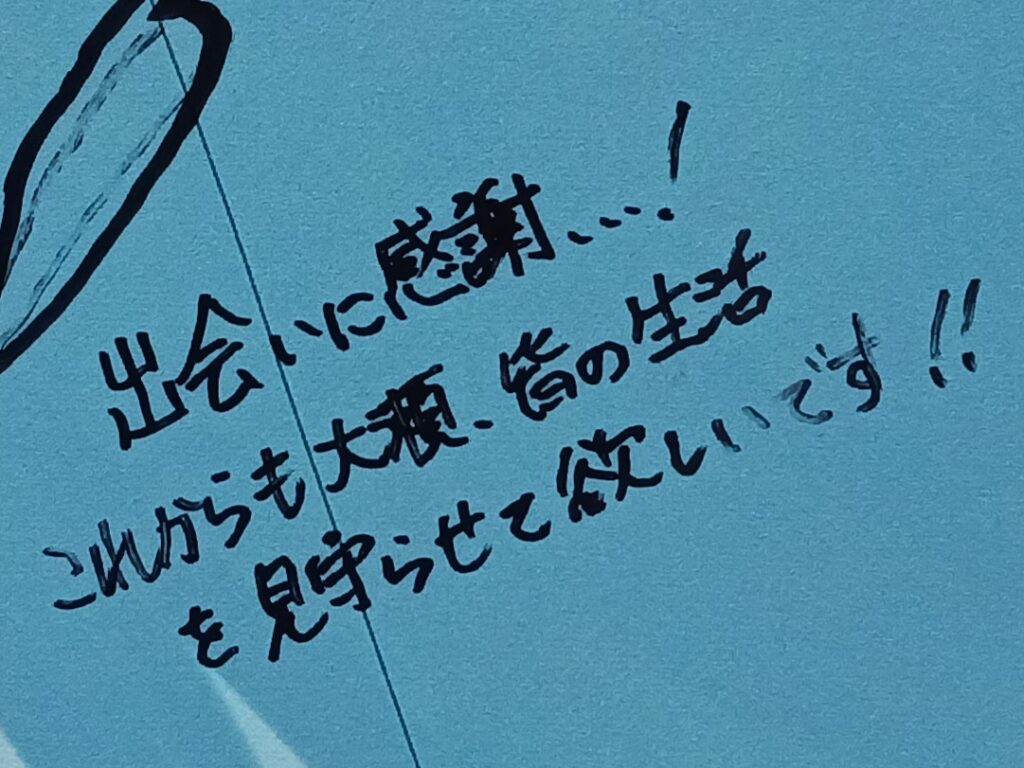 出会いに感謝…!
これからも大瀬、皆の生活
を見守らせて欲しいです!!